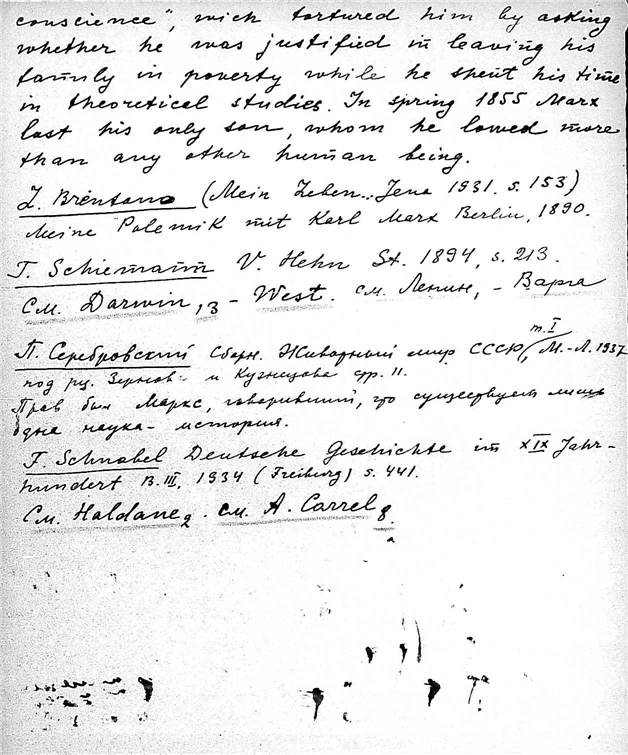 conscience", wich tortured him by asking
whether he was justified in leaving his
family in poverty while he spent his time
in theoretical studies. In spring 1855 Marx
lost his only son, whom he lowed more
than any other human being.
L. Brentano (Mein Leben.. Jena 1931. s. 153)
Meine Polemik mit Karl Marx Berlin, 1890.
T. Schiemann V. Hehn St. 1894, s. 213.
См. Darwin, 13 - West. см. Ленин, - Варга
П. Серебровский Сборн. Животный мир СССР, т. I М.-Л. 1937
под рц. Зернова и Кузнецова стр. 11.
Прав был Маркс, говоривший, что существует лишь
одна наука - история.
F. Schnabel Deutsche Geschichte im XIX Jahr-
hundert B. III, 1934 (Freiburg) s. 441.
См. Haldane 2. см. A. Carrel 8